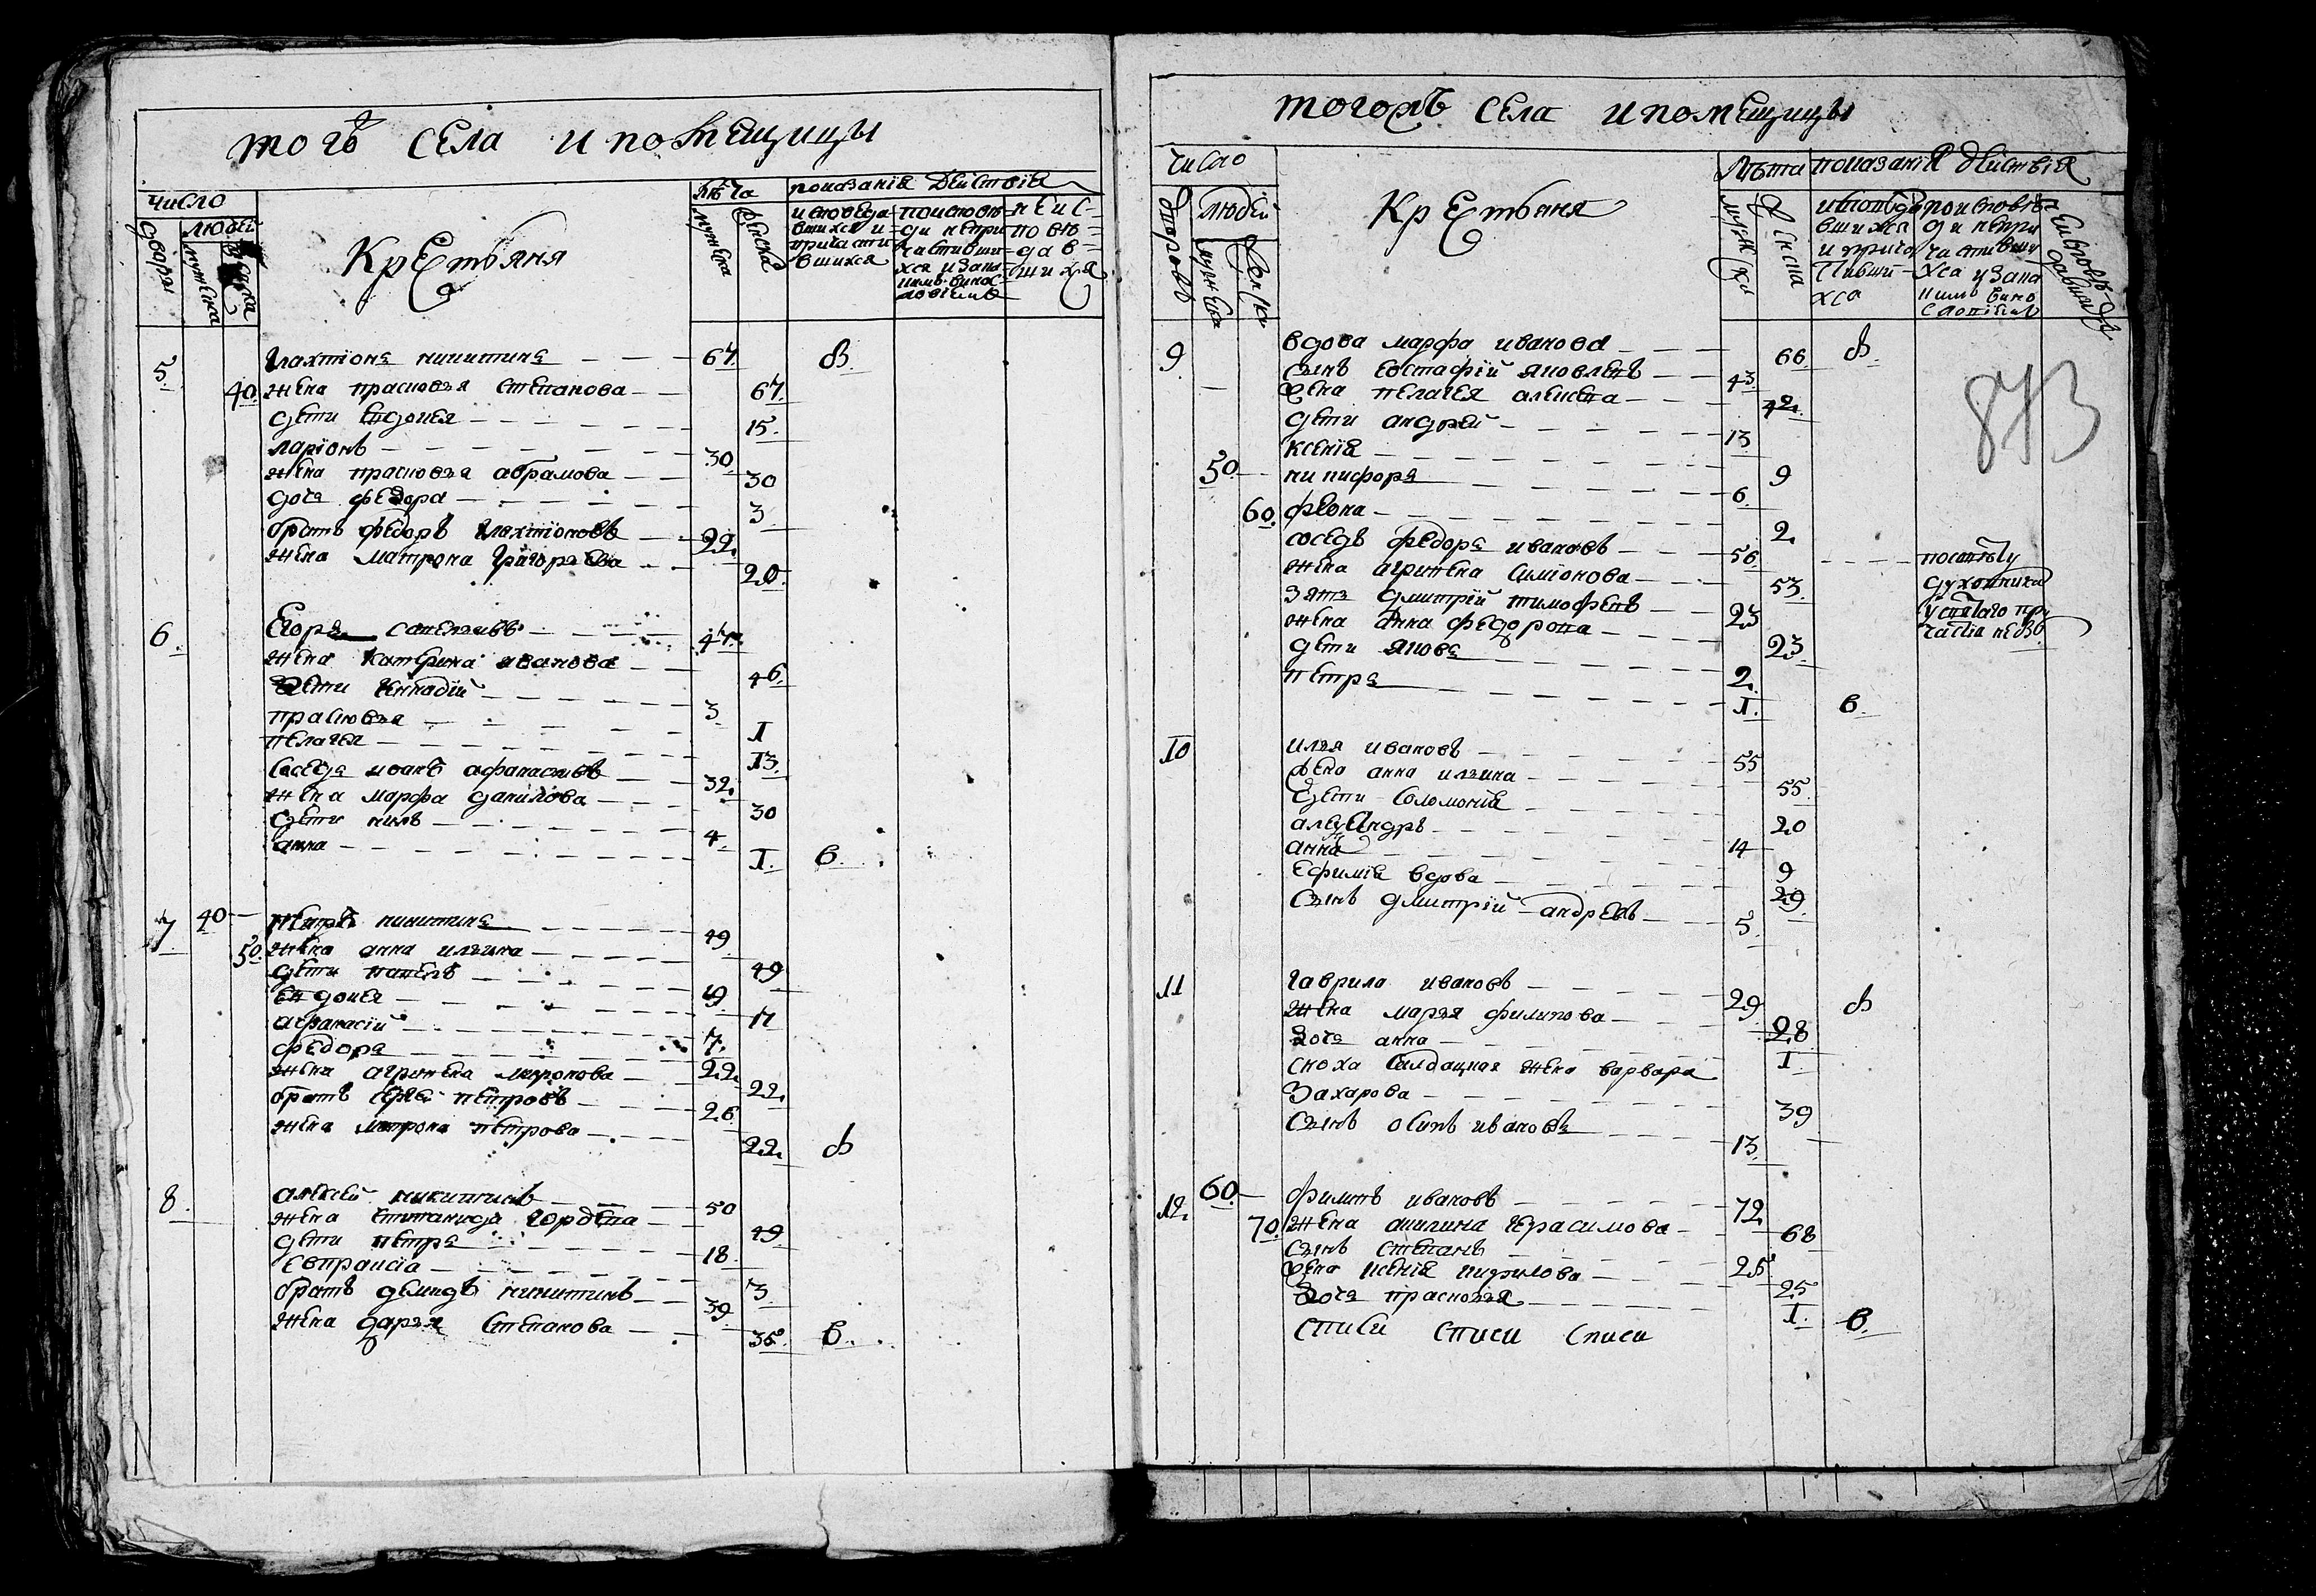 тогѣ села и помещицы
число
лѣта
показанiя действiя
дворы
людей
мужеска
женска
Крѣстьяня
мужеска
женска
исповеда
вшихся и
причасти
вшихся
поисповѣ
ди непри
частивши
хся и зана
неис
повѣ
дав
шихся
5
Галахтіонъ никитинъ 67
40 жена прасковья степанова 67
дети евдокея 15
ларіонъ 30
жена прасковья абрамова 30
дочь федора 3
братъ федоръ галахтіоновъ 22
жена матрона григорьева 20
6
Егоръ савельивъ 47
жена катерина иванова 46
дети генадій 3
прасковья 1
пелагея 13
соседъ иванъ афанасьивъ 32
жена марфа данилова 30
дети нилъ 4
анна 1 в
7 40
петръ никитинъ 49
50 жена анна ильина 49
дети павелъ 19
евдокея 11
афанасій 7
федоръ 22
жена агрипена миронова 22
братъ сергей петровъ 26
жена матрона петрова 22
8
алексей никитинъ 50
жена степанида гордеева 49
дети петръ 18
евпраксіа 3
братъ демидъ никитинъ 39
жена дарья степанова 35 в
тогожъ села и помещицы
число
лѣта
показанiя действiя
дворовъ
людей
мужеска
женска
Крѣстьяня
муж
женска
вшихся
и прича
стивши
хся
поисповѣ
ди непри
частивши
хся и зана
9
вдова марфа иванова 66
сынъ евстафій яковлевъ 43
жена пелагея алексеева 42
дети андрей 13
ксенія 9
50 никифоръ 6
60 феона 2
соседъ федоръ ивановъ 56 посовѣту
жена агрипена симіонова 53 духовника
зять дмитрій тимофеевъ 23 усвятаго при
жена анна федорова 23 частія небы
дети яковъ 2
петръ 1 в
10
илья ивановъ 55
жена анна ильина 55
дети соломонія 20
александръ 14
анна 9
ефимія вдова 29
сынъ дмитрій андреевъ 5
11
гаврила ивановъ 29
жена марья филипова 28
дочь анна 1
сноха салдацкая жена варвара
захарова 39
сынъ осипъ ивановъ 13
12 60
филипъ ивановъ 72
70 жена акилина герасимова 68
сынъ степанъ 25
жена ксенія кирилова 25
дочь прасковья 1 в
списи списи списи
873